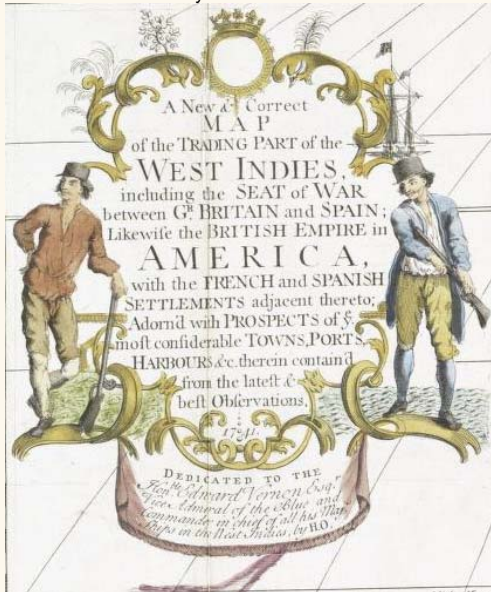 A New & Correct
MAP
of the TRADING PART of the
WEST INDIES,
including the SEAT of WAR
between Gᴿ. BRITAIN and SPAIN;
Likewiſe the BRITISH EMPIRE in
AMERICA,
with the FRENCH and SPANISH
SETTLEMENTS adjacent thereto;
Adorn'd with PROSPECTS of yᵉ.
moſt conſiderable TOWNS, PORTS,
HARBOURS &c. therein contain'd
from the lateſt &
beſt Obſervations,
1741.
DEDICATED TO THE
Honᵇˡᵉ Edward Vernon Eſqᵣ.
Vice Admiral of the Blue and
Commander in chief of all his Maj
Ships in the West Indies, by H.O.